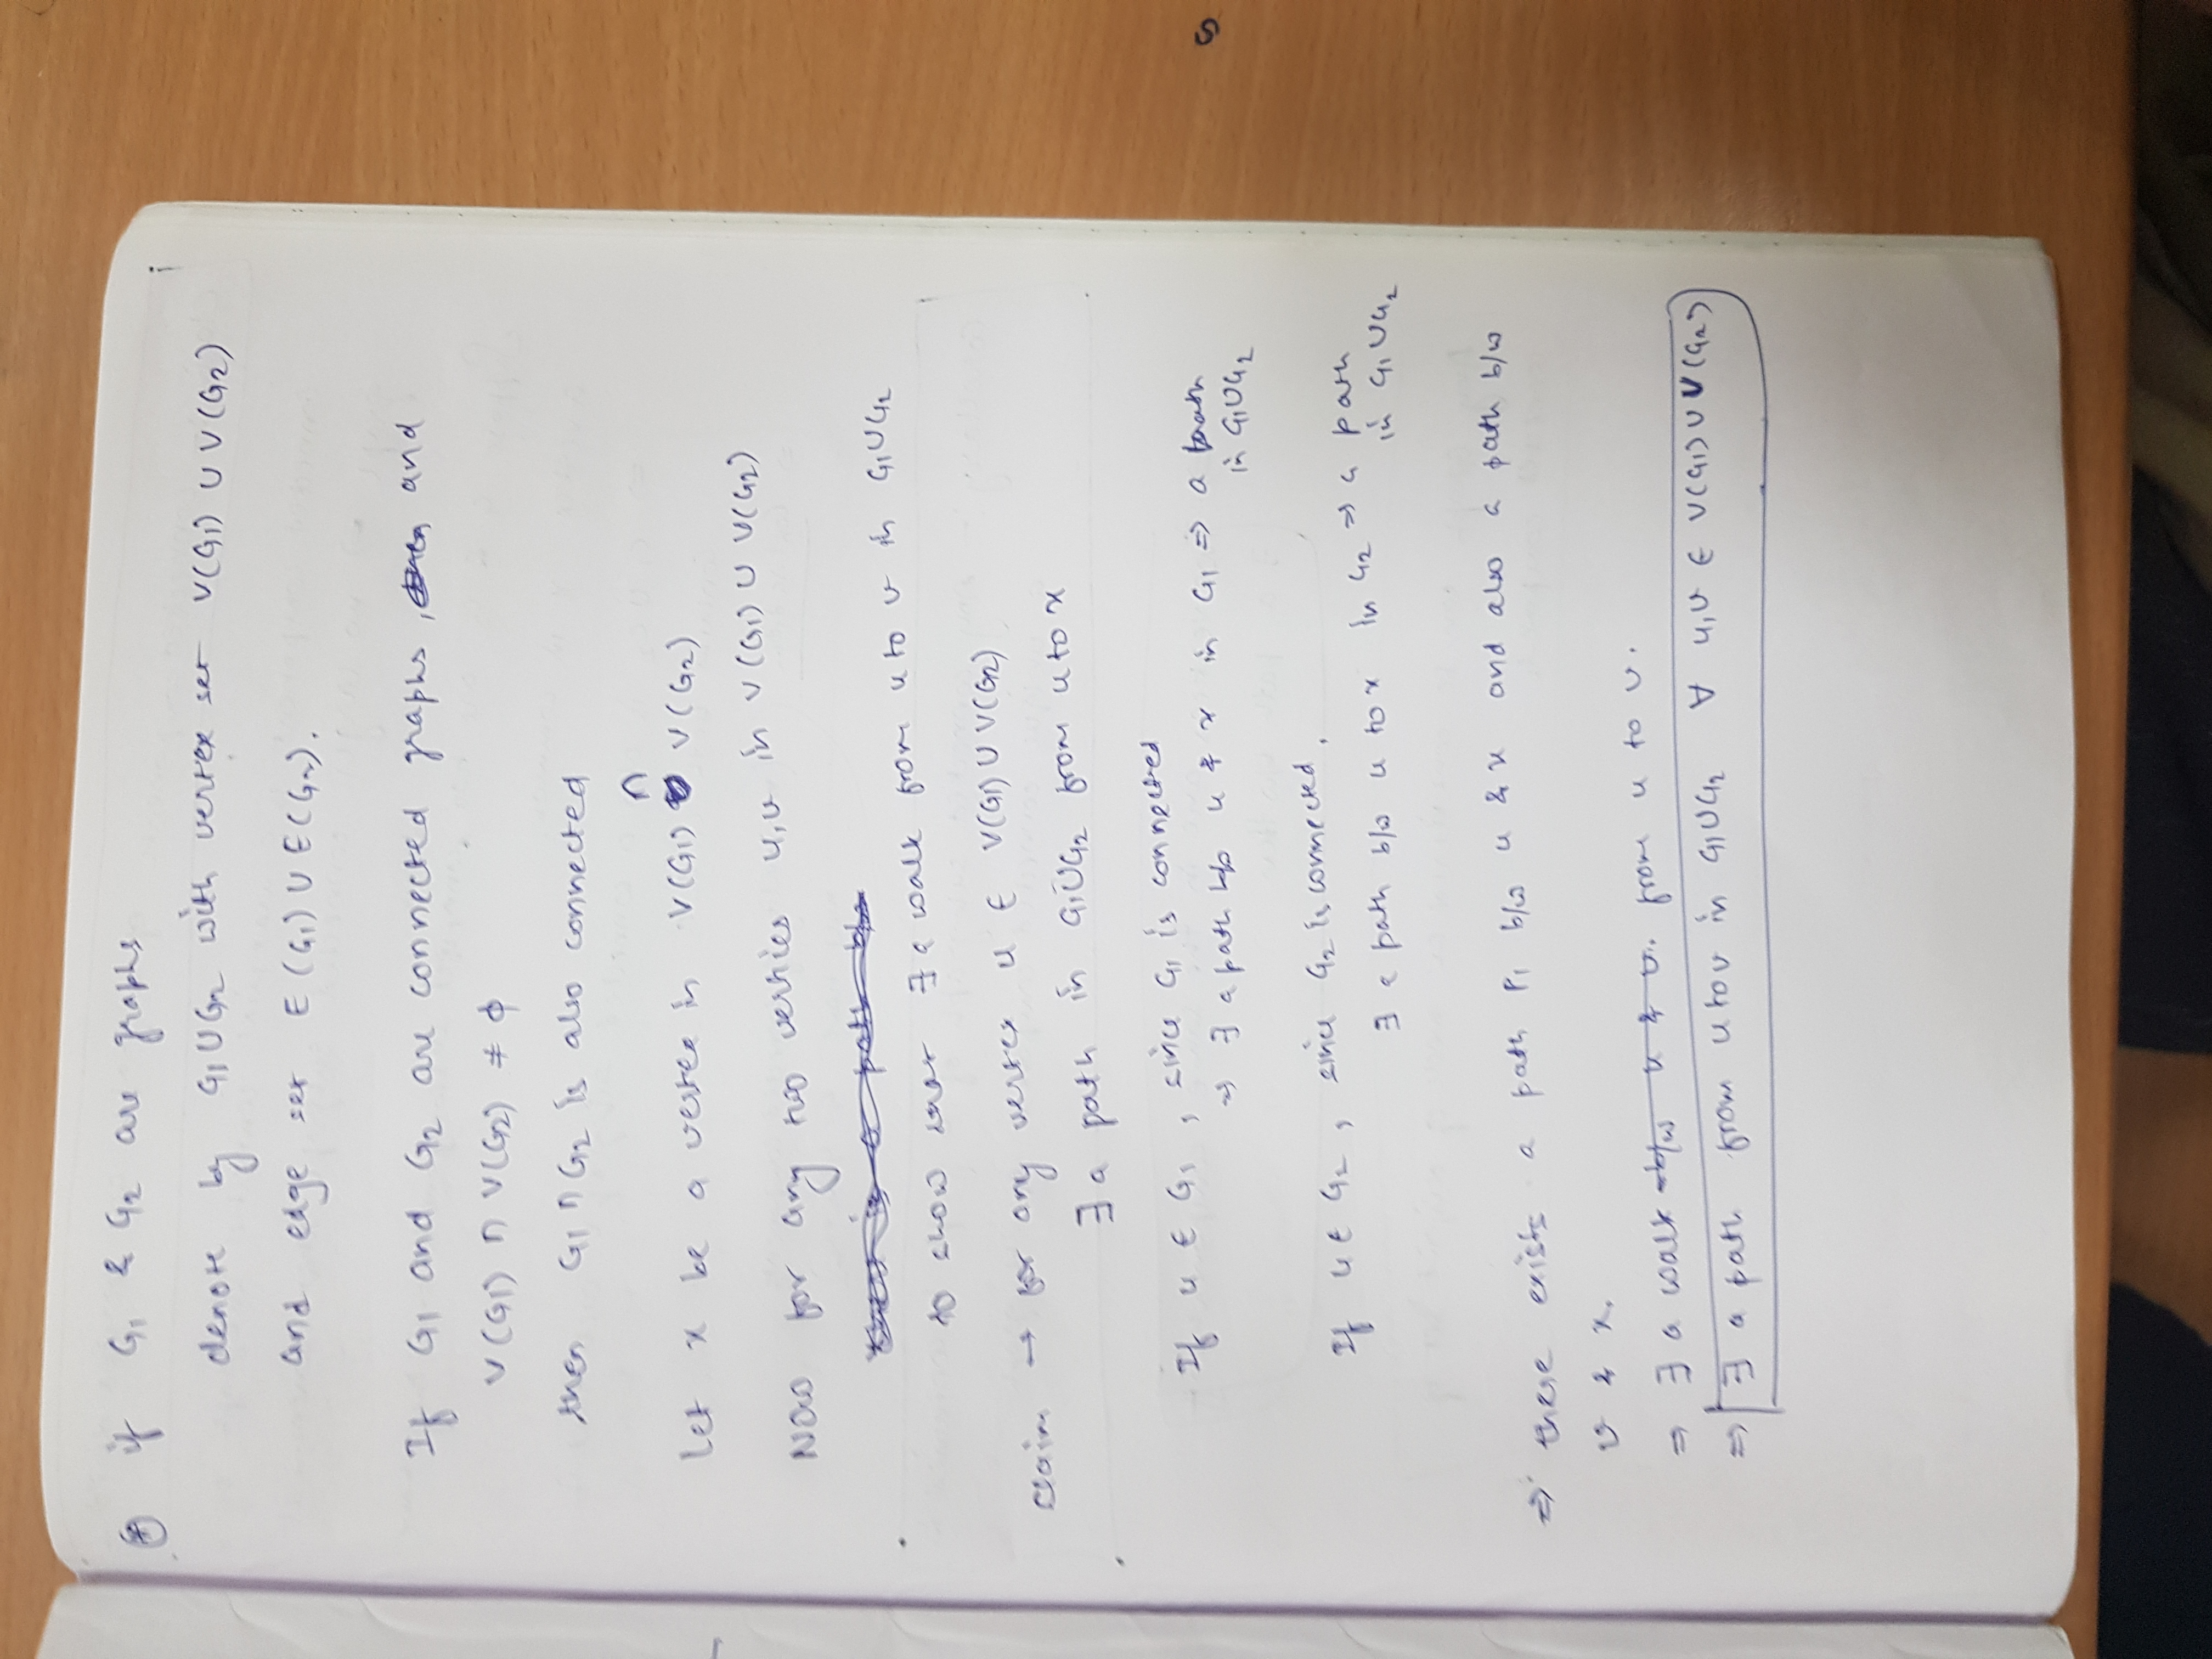 ⊛ if G1 & G2 are graphs
denote by G1∪G2 with vertex set V(G1) ∪ V(G2)
and edge set E(G1) ∪ E(G2).
If G1 and G2 are connected graphs, and
V(G1) ∩ V(G2) ≠ ϕ
then G1 ∩ G2 is also connected
Let x be a vertex in V(G1) ∩ V(G2)
Now for any two vertices u,v in V(G1) ∪ V(G2)
there is a path b/w
to show that ∃ a walk from u to v in G1∪G2
claim → for any vertex u ∈ V(G1) ∪ V(G2)
∃ a path in G1∪G2 from u to x
If u ∈ G1, since G1 is connected
⇒ ∃ a path b/w u & x in G1 ⇒ a path
in G1∪G2
If u ∈ G2, since G2 is connected,
∃ a path b/w u to x in G2 ⇒ a path
in G1∪G2
⇒ there exists a path P1 b/w u & x and also a path b/w
v & x.
⇒ ∃ a walk b/w u & v. from u to v.
⇒ ∃ a path from u to v in G1∪G2 ∀ u,v ∈ V(G1) ∪ V(G2)